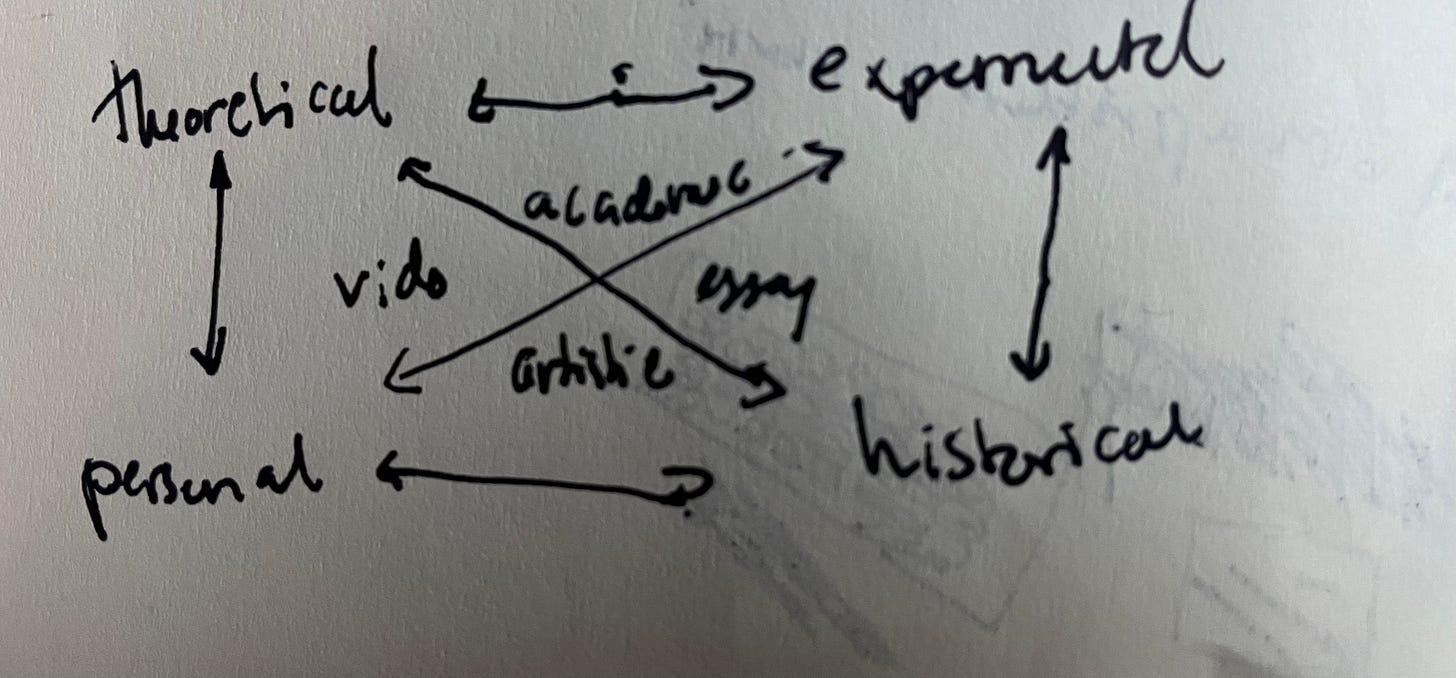 theoretical experimental
academic
video essay
artistic
personal historical